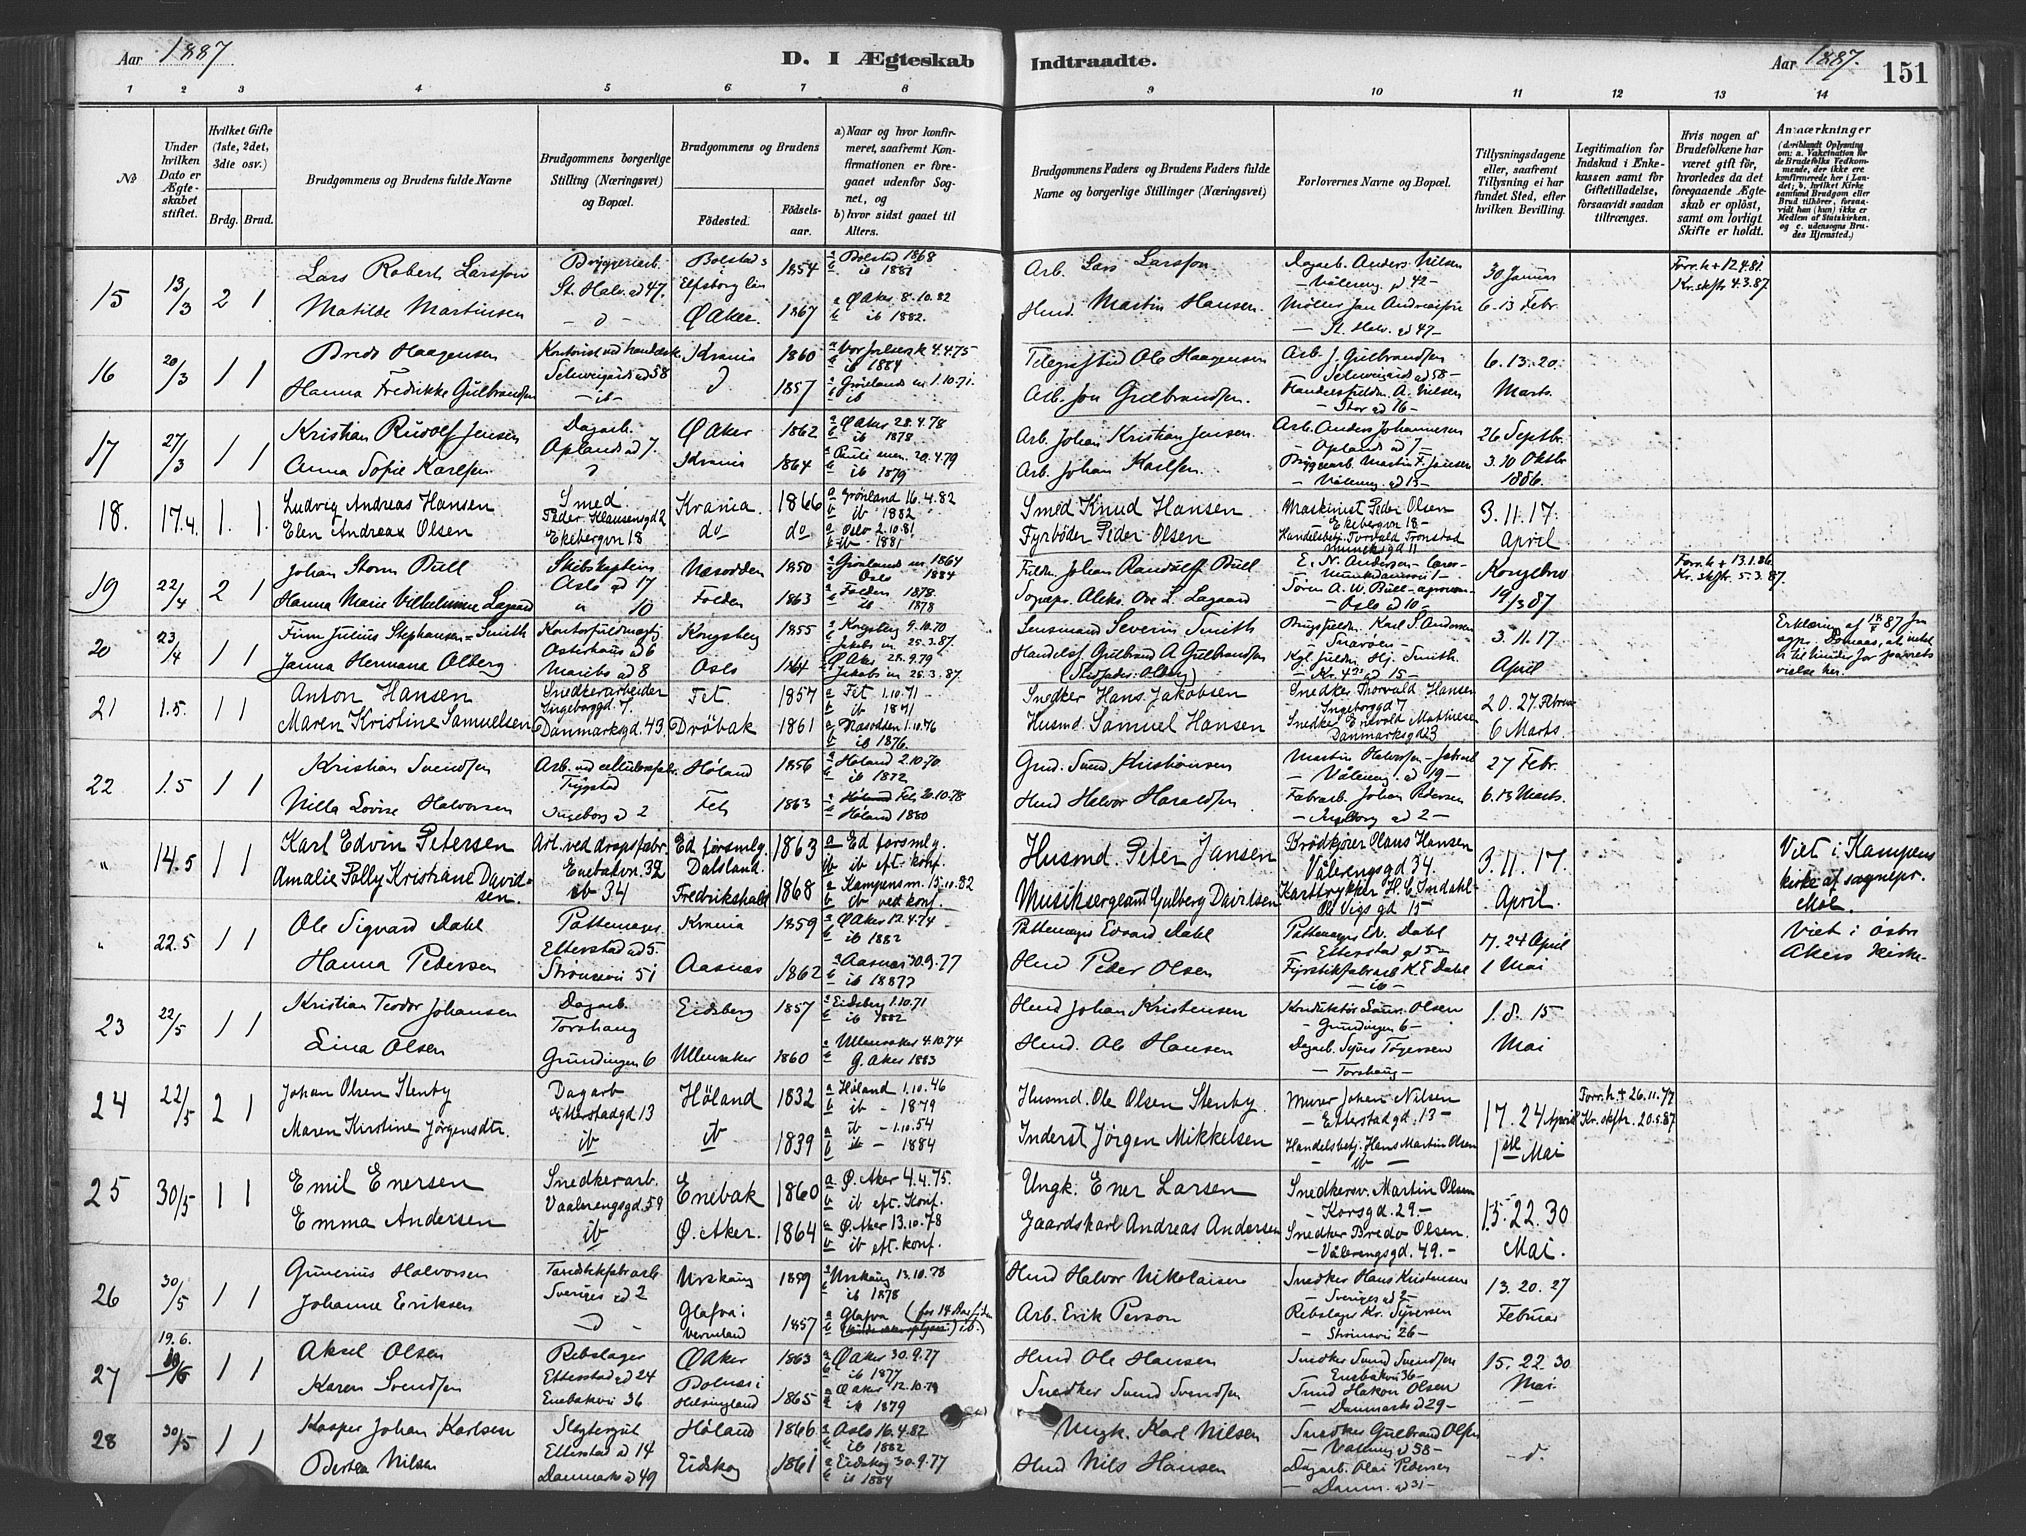 Aar 1887.
D. I Ægteskab
Indtraadte.
Aar 1887.
151
1 2 3 4 5 6 7 8 9 10 11 12 13 14
No
Under hvilken Dato er Ægteskabet stiftet.
Hvilket Gifte (1ste, 2det, 3die osv.)
Brdg. Brud.
Brudgommens og Brudens fulde Navne
Brudgommens borgerlige Stilling (Næringsvei) og Bopæl.
Brudgommens og Brudens
Fødested.
Fødselsaar.
a) Naar og hvor konfirmeret, saafremt Konfirmationen er foregaaet udenfor Sognet, og
b) hvor sidst gaaet til Alters.
Brudgommens Faders og Brudens Faders fulde Navne og borgerlige Stillinger (Næringsvei)
Forlovernes Navne og Bopæl.
Tillysningsdagene eller, saafremt Tillysning ei har fundet Sted, efter hvilken Bevilling.
Legitimation for Indskud i Enkekassen samt for Giftetilladelse, forsaavidt saadan tiltrænges.
Hvis nogen af Brudefolkene har været gift før, hvorledes da det foregaaende Ægteskab er opløst, samt om lovligt Skifte er holdt.
Anmærkninger (deriblandt Oplysning om: a. Vakcination for de Brudefolks Vedkommende, der ikke ere konfirmerede her i Landet; b. hvilket Kirkesamfund Brudgom eller Brud tilhører, forsaavidt han (hun) ikke er Medlem af Statskirken, og c. udensogns Brudes Hjemsted.)
15 13/3 2 1 Lars Robert Larsson St. Halv. gd 47. Bolstad i Elfsborg län 1854 a Bolstad 1868 b ib 1881 Arb. Lars Larsson Dagarb. Anders Nilsen - Vålereng. gd 42 - 30 Januar Forr. h. + 12.4.81. Kr. skftr 4.3.87.
Matilde Martinsen Ø Aker. 1867 a Ø Aker 8.10.82 b ib 1882. Husmd. Martin Hansen. Møller Jan Andreassen - St. Halv. gd 47 - 6.13 Febr.
16 20/3 1 1 Bredo Haagensen Schweigårds gd 58 Krania 1860 a Vor frelsers k 4.4.75 b ib 1884 Ole Haagensen Arb. J. Gulbrandsen - Schweigårds gd 58 - 6.13.20.
Hanna Fredrikke Gulbrandsen - ib - do 1857 a Grønlands m 1.10.71. b ib Arb. Jon Gulbrandsen. A. Nilsen - Stor gd 76 - Marts.
17 27/3 1 1 Kristian Rudolf Jensen Dagarb. Oplands gd 7. Ø Aker 1862 a Ø Aker 28.4.78 b ib 1878 Arb. Johan Kristian Jensen. Arb. Anders Johannesen - Oplands gd 7 - 26 Septbr.
Anna Sofie Karlsen Krania 1864 a Pauli men. 20.4.79 b ib 1879 Arb. Johan Karlsen Bryggearb. Martin F. Jansen - Vålereng. gd 13 - 3.10 Oktbr 1886.
18. 17.4. 1. 1. Ludvig Andreas Hansen Smed Peder Klausensgd 2 Krania 1866 a Grønland 16.4.82 b ib 1882 Smed Knud Hansen Maskinist Peder Olsen Ekebergvn 18 - 3.11.17.
Elen Andreax Olsen Ekebergvn 18 do do a Oslo 2.10.81 b ib - 1881 Fyrbøder Peder Olsen Handelsbetj. Torvald Tronstad Munkesgd 11 April
19 22/4 2 1 Johan Storm Bull Skibskaptein Oslo gd 17 Næsodden 1850 a Grønlands m 1864 b Oslo 1884 Johan Randulff Bull E. N. Andersen Kongebrev Forr. h + 13.1.86. Kr. skftr. 5.3.87.
Hanna Marie Vilhelmine Lagaard " 10 Folden 1863 a Folden 1878. b ib 1878 Sogneprs. Aleks. Ove L. Lagaard Søren A. W. Bull - Oslo gd 10 - 19/3 87
20 23/4 1 1 Finn Julius Stephansen Smith Kontorfuldmægtig Osterhaus gd 6 Kongsberg 1855 a Kongsberg 9.10.70 b Jakobs m 25.3.87. Lensmand Severin Smith Karl S. Andersen - Snarøen - 3.11.17. Erklæring af
Janna Hermana Olberg Maribs gd 8 Oslo 1864 a Ø Aker 28.9.79 b Jakobs m 25.3.87. Handelsf Gulbrand A Gulbrandsen (Stedfader: Olberg) Kgl. fuldm Hj. Smith. - Kr. 4de gd 15 - April vielse her.
21 1.5. 1 1 Anton Hansen Snedkerarbeider Ingeborggd. 7. Fet. 1857 a Fet. 1.10.71 - b ib 1871 Snedker Hans Jakobsen Snedker Thorvald Hansen - Ingeborggd 7 20.27. Februar
Maren Kristine Samuelsen Danmarksgd. 43 Drøbak 1861 a Næsodden 1.10.76 b ib 1876. Husmd. Samuel Hansen Snedker Enevold Mathiesen Danmarksgd 23 6 Marts
22 1.5 1 1 Kristian Svendsen Trygstad Høland 1856 a Høland 2.10.70 b ib 1872 Grd. Svend Kristiansen Martin Halvorsen - Vålereng. gd 19 - 27 Febr.
Nilla Lovise Halvorsen Ingeborg gd 2 Feh 1863 a Høland Feh 20.10.78 b Høland 1880 Husmd Helvor Haraldsen Fabrarb. Johan Pedersen - Ingeborg gd 2 - 6.13 Marts.
" 14.5 1 1 Karl Edvin Petersen Arb. ved drops fabr. Enebakvn. 32 Ed forsmlg. Dalsland. 1863 a Ed forsmlg. b ib eft. konf. Husmd. Peter Jansen Brødkjører Olaus Hansen Vålerengsgd 34. 3.11.17. Viet i Kampens kirke af sognepr. Møl.
Amalie Polly Kristiane Davidsen. ib 34 Fredrikshald 1868 a Kampens m. 15.10.82 b ib ved konf. Musiksergeant Gulberg Davidsen Karttrykker H. C. Imdahl Ole Vigs gd 15 April.
" 22.5 1 1 Ole Sigvard Dahl Pottemager Etterstad gd 5. Krania 1859 a Ø Aker 12.4.74 b ib 1882 Pottemager Edvard Dahl Pottemager Ed. Dahl - Etterstad gd 5 - 17.24 April Viet i Østre Akers kirke -
Hanna Pedersen Strømsvei 51 Aasnæs 1862 a Aasnæs 30.9.77 b ib 1887? Husmd Peder Olsen Fyrstikfabrarb K. E. Dahl - ib - 1 Mai
23 22/5 1 1 Kristian Teodor Johansen Dagarb. Torshaug Eidsberg 1857 a Eidsberg 1.10.71 b ib 1882 Husmd Johan Kristensen Konduktør Laur. Olsen - Grundingen 6 - 1.8.15
Lina Olsen Grundingen 6 Ullensaker 1860 a Ullensaker 4.10.74 b G. Aker 1883 Husmd. Ole Hansen Dagarb. Syver Tøgersen - Torshaug - Mai
24 22/5 2 1 Johan Olsen Stenby Dagarb Etterstadgd 13 Høland 1832 a Høland 1.10.46 b ib - 1879 Husmd. Ole Olsen Stenby. Murer Johan Nilsen - Etterstadgd. 13 - 17.24 April Forr. h. + 26.11.77 Kr. skftr. 20.5.87
Maren Kirstine Jørgensdtr. ib ib 1839 a ib - 1.10.54 b ib - 1884 Inderst Jørgen Mikkelsen Handelsbetj. Hans Martin Olsen - ib - 1ste Mai
25 30/5 1 1 Emil Enersen Snedkerarb. Vaalerengsgd. 59 Enebak 1860 a Ø. Aker 4.4.75. b ib eft. Konf. Ungk. Ener Larsen Snedkersv. Martin Olsen - Korsgd. 29. - 15.22.30
Emma Andersen ib Ø. Aker. 1864 a Ø. Aker 13.10.78 b ib eft. konf. Gaardskarl Andreas Andersen Snedker Bredo Olsen. - Vålerengsgd. 49. - Mai.
26 30/5 1 1 Gunerius Halvorsen Tændstikfabrarb. Sveriges gd 2 Urskoug 1859 a Urskoug 13.10.78 b ib 1878 Husmd Halvor Nikolaisen Snedker Hans Kristensen - Sveriges gd 2 - 13.20.27
Johanne Eriksen - do - Glafva i Vermland 1857 a Glafva (for 14 Aar siden) b ib. Arb. Erik Person Rebslager Kr. Syversen - Strømsvei 26 - Februar
27 19.6. 1 1 Aksel Olsen Rebslager Etterstad gd 24 Ø Aker 1863 a Ø Aker 30.9.77 b ib 1877 Husmd Ole Hansen Snedker Svend Svendsen Enebakvei 36 - 15.22.30
Karen Svendsen Enebakvei 36 Bolnæs i Helsingland 1865 a Ø Aker 12.10.79 b ib 1879 Snedker Svend Svendsen Hakon Olsen - Danmarks gd 29 - Mai
28 30/5 1 1 Kasper Johan Karlsen Etterstad gd 14 Høland 1866 a Oslo 16.4.82 b ib 1882 Ungk. Karl Nilsen Snedker Gulbrand Olsen - Vålereng gd 58 - - do.
Bertea Nilsen Danmarks gd 49 Eidskog 1861 a Eidskog 30.9.77 b ib 1884 Husmd Nils Hansen Dagarb. Olai Pedersen - Danm. gd 31 -